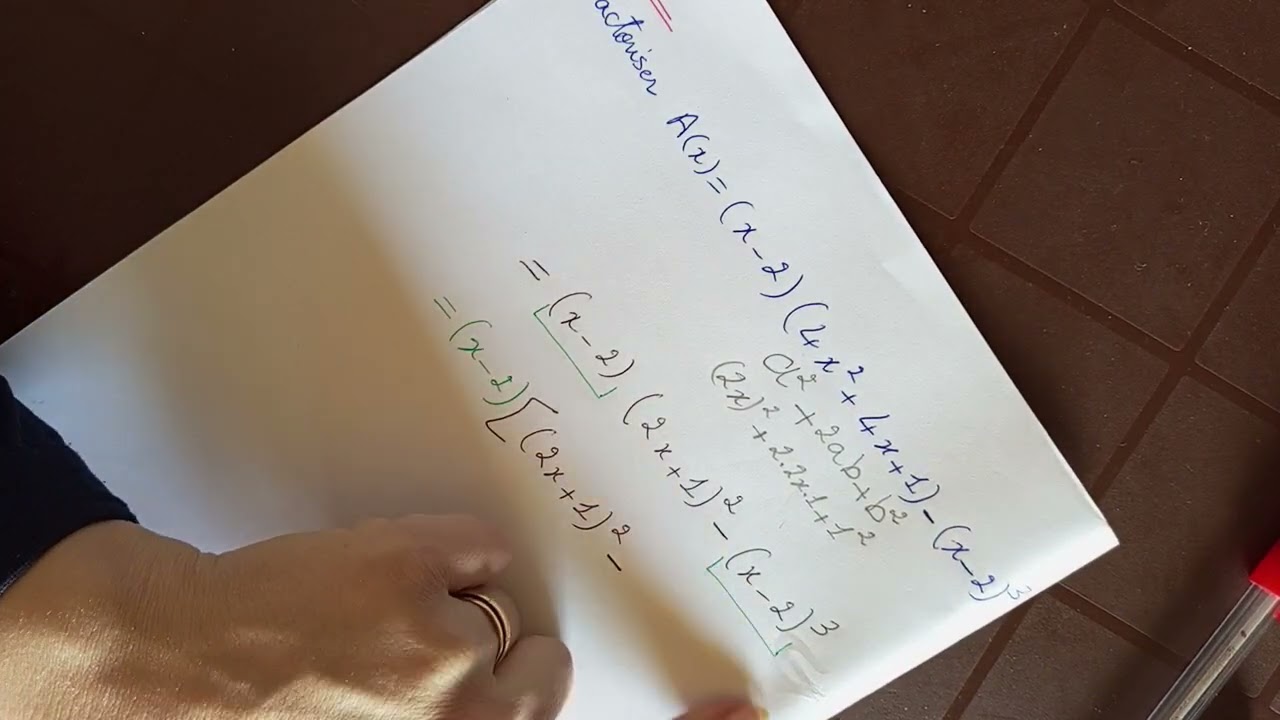 actoriser A(x) = (x-2)(4x²+4x+1) - (x-2)³
a² + 2ab + b²
(2x)² + 2.2x.1 + 1²
= (x-2) (2x+1)² - (x-2)³
= (x-2) [(2x+1)² -